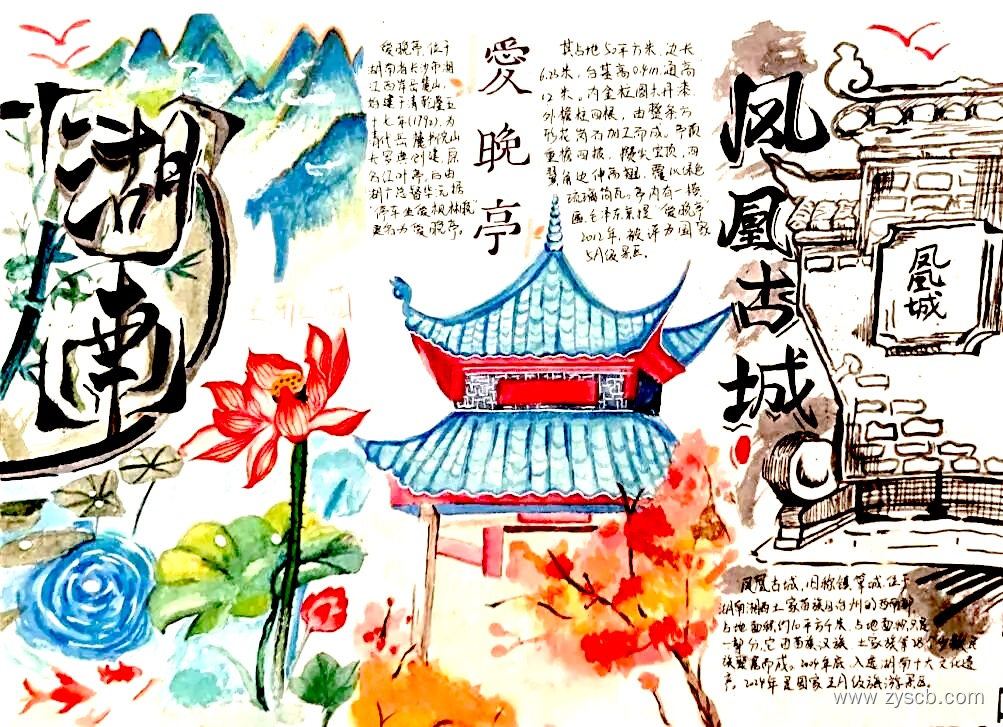 湖南
愛晚亭
爱晚亭，位于
湖南省长沙市湖
江西岸岳麓山，
始建于清乾隆五
十七年(1792)，为
清代岳麓书院山
长罗典创建，原
名红叶亭，后由
湖广总督毕沅据
“停车坐爱枫林晚”
更名为爱晚亭，
其占地50平方米，边长
6.25米，台基高0.4m，通高
12米。内金柱圆木丹漆
外檐柱四根，由整条方
形花岗石加工而成。亭顶
重檐四披，攒尖宝顶，四
翼角边伸高翘，覆以绿色
琉璃筒瓦。亭内有一横
匾毛泽东亲提“爱晚亭”
2012年，被评为国家
5A级景区。
凤凰古城
凤凰城
凤凰古城，旧称镇竿城，位于
湖南湘西土家苗族自治州的西南部
占地面积约10平方千米，占地面积
一部分，它由苗族汉族 土家族等28个少数民
族聚居而成。 入选湖南十大文化遗
产。 是国家五A级旅游景区。
www.zyscb.com